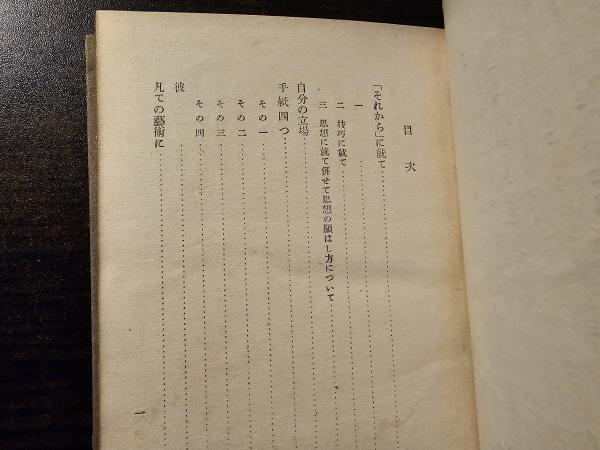 目次
「それから」に就て
一
二 技巧に就て
三 思想に就て併せて思想の顯はし方について
自分の立場
手紙四つ
その一
その二
その三
その四
彼
凡ての藝術に
一